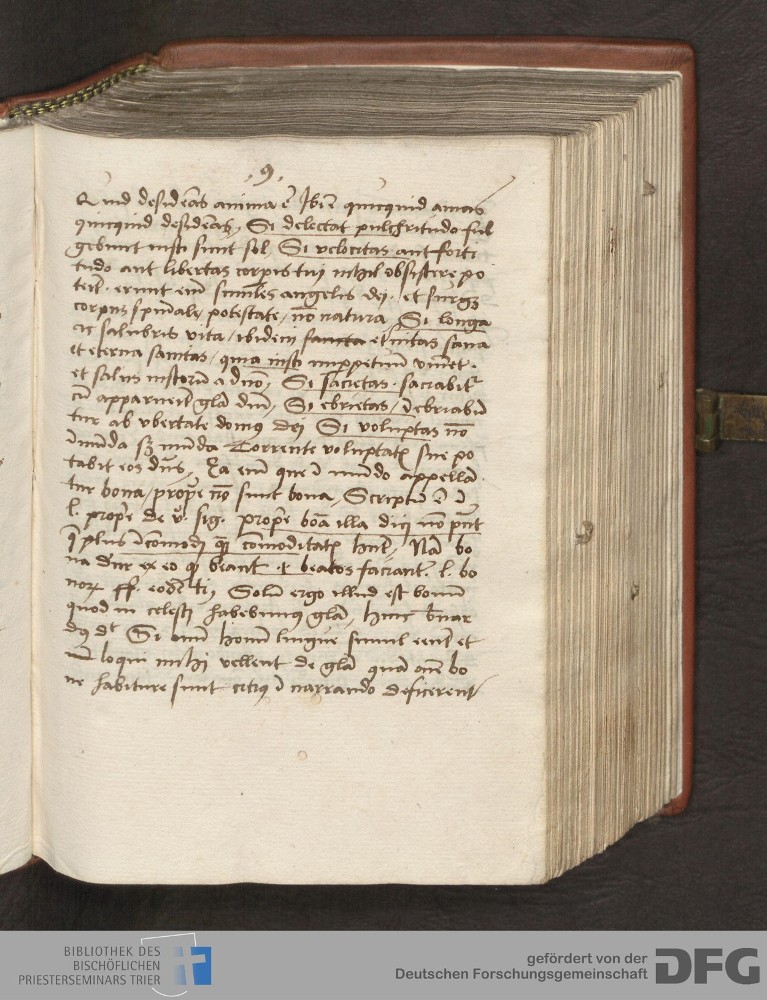 .9.
Quid desideras anima ē Ibi ē quicquid amas
quicquid desideras, Si delectat pulchritudo ful
gebunt iusti sicut sol, Si velocitas aut forti
tudo aut libertas corpis tuj nichil obsistere po
terit . erunt em̄ similes angelis dei . et surget
corpus spūale / potestate / nō natura, Si longa
ac salubris vita / ibidem et̄nitas sana
et eterna sanitas / quia iusti imppetuū viuēt .
et salus iustorū a dn̄o, Si sacietas . saciabitr
cū apparuerit glā dnī, Si ebrietas / inebriabū
tur ab vbertate domus dei Si voluptas nō
īmūda sꝫ mūda Torrente voluptatis sue po
tabit eos dn̄s, Ea em̄ que ī mūdo appellā
tur bona / proprie nō sunt bona, Scriptū ē ī
l. proprie de v̄. sig. proprie bōa illa dici nō pn̄t
q̄ plus īcomodi qꝫ comoditatis hn̄t, Nā bo
na dn̄r ex eo qꝫ beant . i. beatos faciant. l. bo
norꝫ ff. eodē ti, Solū ergo illud est bonū
quod in celesti habebimus glā, hinc bn̄ar
dꝰ dt Si om̄ hoīm lingue simul eēnt et
loqui michi vellent de glā quā aīe bo
ne habiture sunt citiꝰ ī narrando deficerent
BIBLIOTHEK DES
BISCHÖFLICHEN
PRIESTERSEMINARS TRIER
gefördert von der
Deutschen Forschungsgemeinschaft
DFG